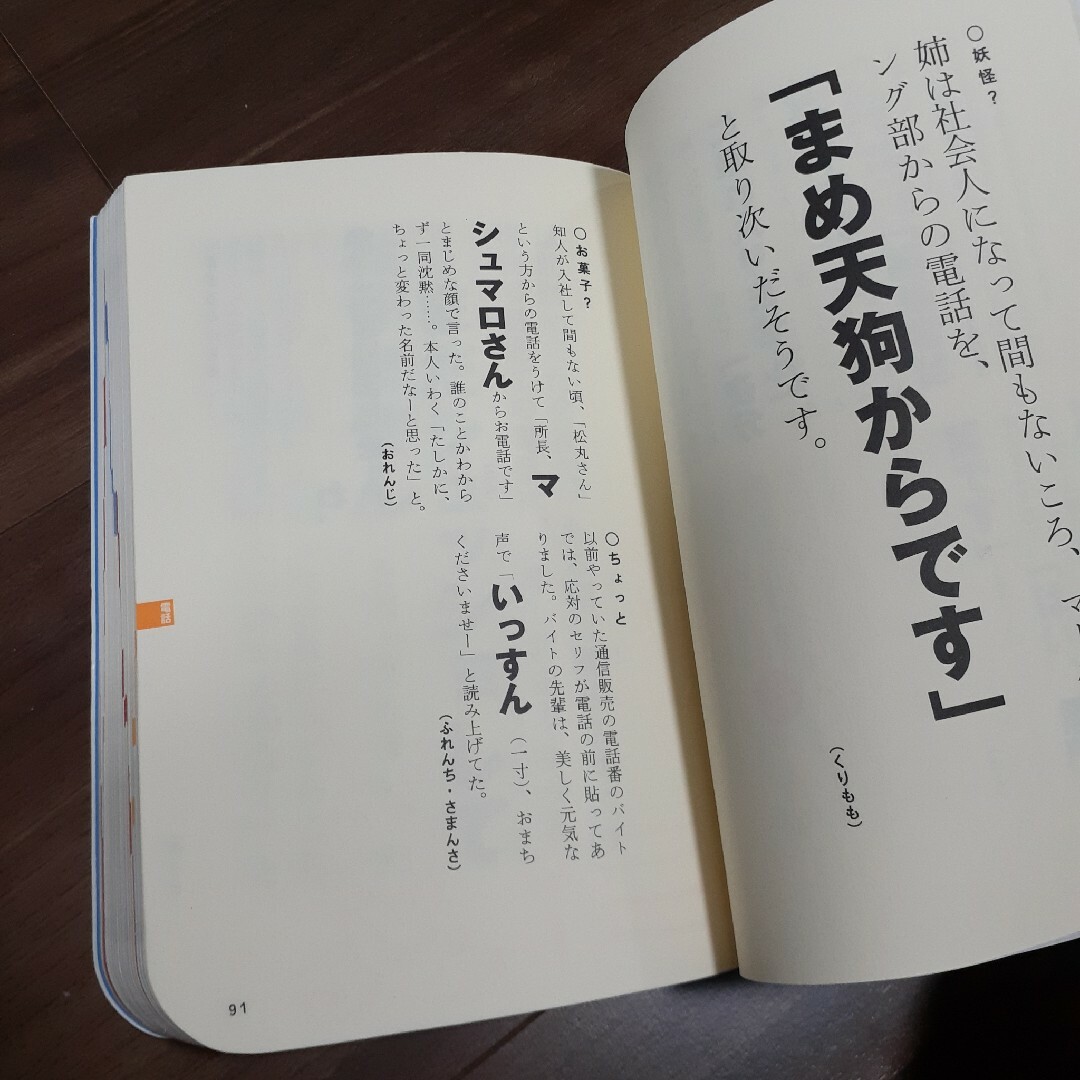 ○妖怪？
姉は社会人になって間もないころ、マ
ング部からの電話を、
「まめ天狗からです」
と取り次いだそうです。
（くりもも）
○お菓子？
知人が入社して間もない頃、「松丸さん」
という方からの電話をうけて「所長、マ
シュマロさんからお電話です」
とまじめな顔で言った。誰のことかわから
ず一同沈黙……。本人いわく「たしかに、
ちょっと変わった名前だなーと思った」と。
（おれんじ）
○ちょっと
以前やっていた通信販売の電話番のバイト
では、応対のセリフが電話の前に貼ってあ
りました。バイトの先輩は、美しく元気な
声で「いっすん（一寸）、おまち
くださいませー」と読み上げてた。
（ふれんち・さまんさ）
電話
91